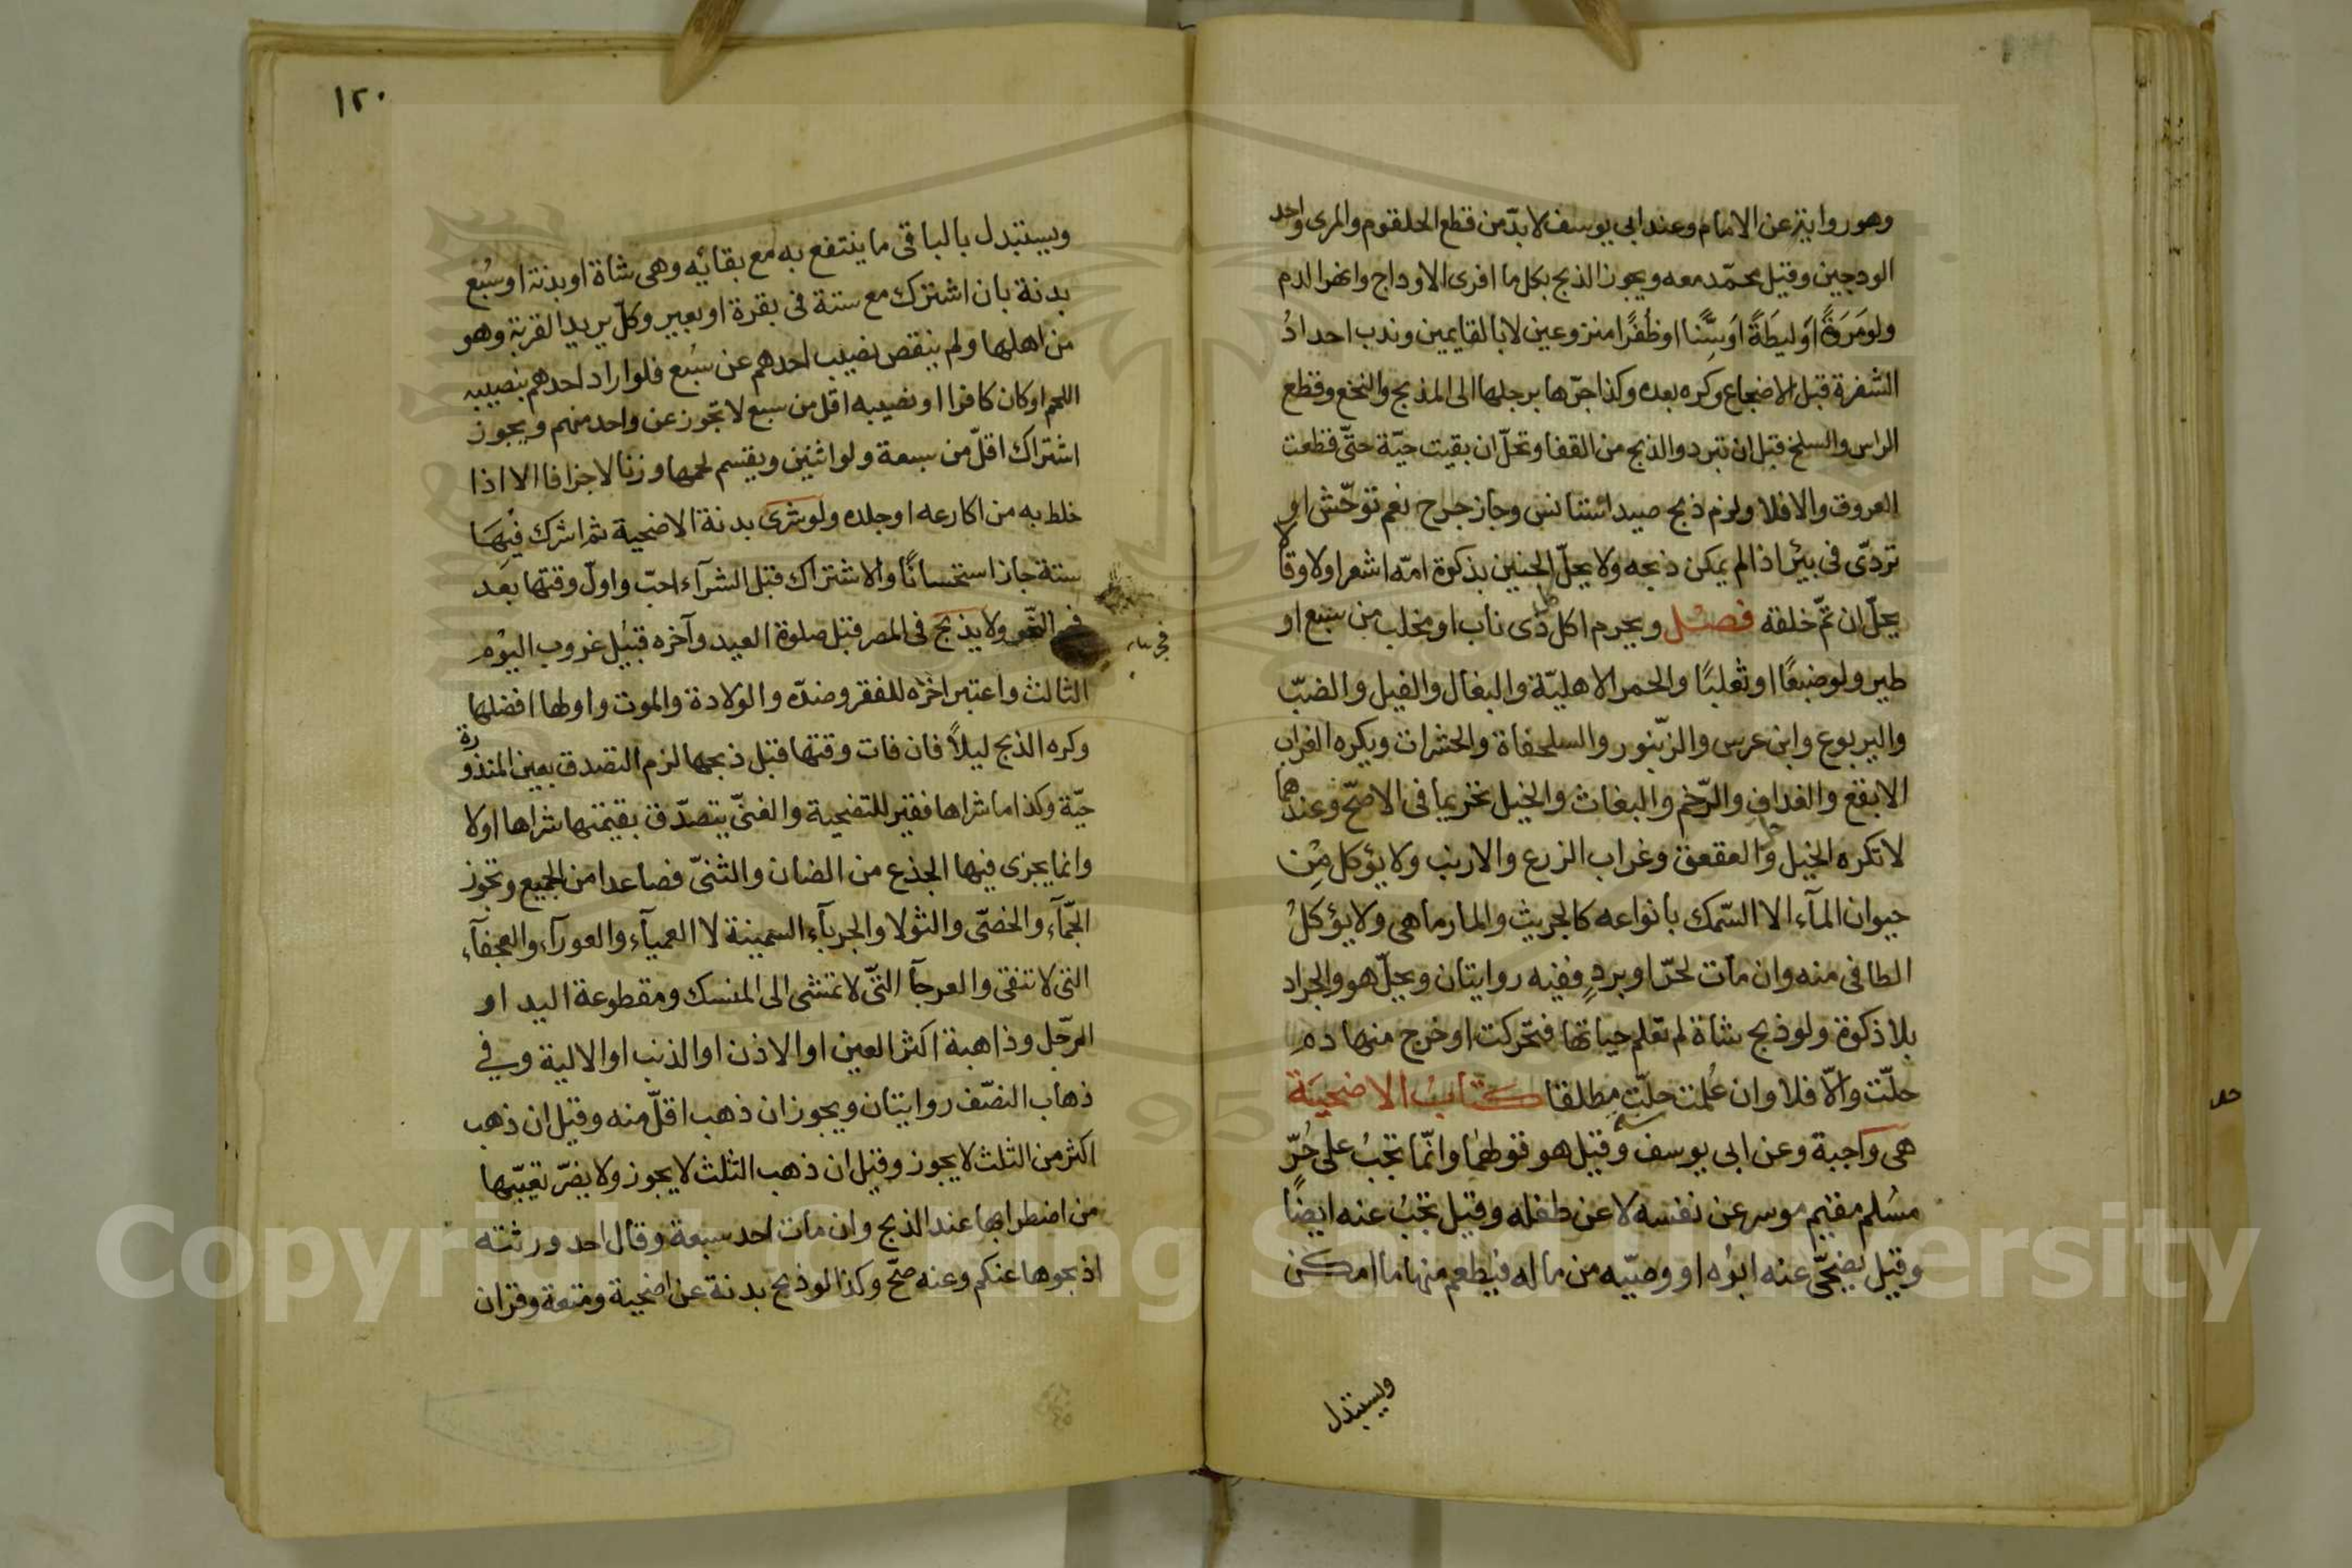 وهو رواية عن الامام وعند ابى يوسف لا بدّ من قطع الحلقوم والمرى واحد
الودجين وقيل محمّد معه ويجوز الذبح بكل ما افرى الاوداج وانهر الدم
ولو مَروَةً او لِيطَةً او سِنًّا او ظُفرًا منزوعين لا بالقايمين وندب احدادُ
الشفرة قبل الاضجاع وكره بعده وكذا جرّها برجلها الى المذبح والنخع وقطع
الراس والسلخ قبل ان تبرد والذبح من القفا وتحلّ ان بقيت حيّة حتّى قطعت
العروق والا فلا ولزم ذبح صيد استانس وجاز جرح نعم توحّش او
تردّى فى بئر اذا لم يمكن ذبحه ولا يحلّ الجنين بذكوة امّه اشعر اولا وقالا
يحلّ ان تمّ خلقه فصل ويحرم اكل كل ذى ناب او مخلب من سبع او
طير ولو ضبعًا او ثعلبًا والحمر الاهليّة والبغال والفيل والضبّ
واليربوع وابن عرس والزنبور والسلحفاة والحشرات ويكره الغراب
الابقع والغداف والرّخم والبغاث والخيل تحريما فى الاصحّ وعندهما
لا تكره الخيل وحل العقعق وغراب الزرع والارنب ولا يؤكل مِن
حيوان المآء الا السّمك بانواعه كالجريث والمارماهى ولا يؤكلُ
الطافى منه وان مات لحرّ او بردٍ ففيه روايتان ويحلّ هو والجراد
بلا ذكوة ولو ذبح شاة لم تعلم حياتها فتحركت او خرج منها دم
حلّت والّا فلا وان عُلمت حلّت مطلقا كتاب الاضحية
هى واجبة وعن ابى يوسف سنة وقيل هو قولهما وانّما تجبُ على حُرّ
مسُلم مقيم موسر عن نفسه لا عن طفله وقيل تجبُ عنه ايضًا
وقيل يضحّى عنه ابوُه او وصيّه من ماله فيُطعم منها ما امكن
ويستبدل
١٢٠
ويستبدل بالباقى ما ينتفع به مع بقائه وهى شاة او بدنة او سُبع
بدنة بان اشترك مع ستة فى بقرة او بعير وكلّ يريد القربة وهو
من اهلها ولم ينقص نصيب احدهم عن سُبع فلو اراد احدهم بنصيبه
اللحم او كان كافرا او نصيبه اقل من سبع لا تجوز عن واحد منهم ويجوز
اشتراك اقلّ من سبعة ولو اثنين ويقسم لحمها وزنا لا جزافا الا اذا
خلط به من اكارعه او جلده ولو شرى بدنة الاضحية ثم اشرك فيها
ستة جاز استحسانًا والاشتراك قبل الشرآء احبّ واول وقتها بعد
فجر النحر ولا يذبح فى المصر قبل صلوة العيد وآخره قبيُل غروب اليوُم
الثالث واعتبر اخرُه للفقر وضدّه والولادة والموت واولها افضلها
وكره الذبح ليلاً فان فات وقتها قبل ذبحها لزم التصدق بعين المنذورة
حيّة وكذا ما شراها فقير للتضحية والغنىّ يتصدّق بقيمتها شراها اولا
وانما يجزى فيها الجذع من الضان والثنىّ فصاعدا من الجميع وتجوز
الجمّآء والخصّى والثولا والجربآء السمينة لا العميآء والعورآء والعجفآء
التى لا تنقى والعرجآ التّى لا تمشى الى المنسك ومقطوعة اليد او
الرّجل وذاهبة اكثر العين او الاذن او الذنب او الالية وفى
ذهاب النصّف روايتان ويجوز ان ذهب اقلّ منه وقيل ان ذهب
اكثر من الثلث لا يجوز وقيل ان ذهب الثلث لا يجوز ولا يضرّ تعيّبها
من اضطرابها عند الذبح وان مات احد سبعة وقال احد ورثته
اذبحوها عنكم وعنه صحّ وكذا لو ذبح بدنة عن اضحية ومتعة وقران
Copyright © King Saud University